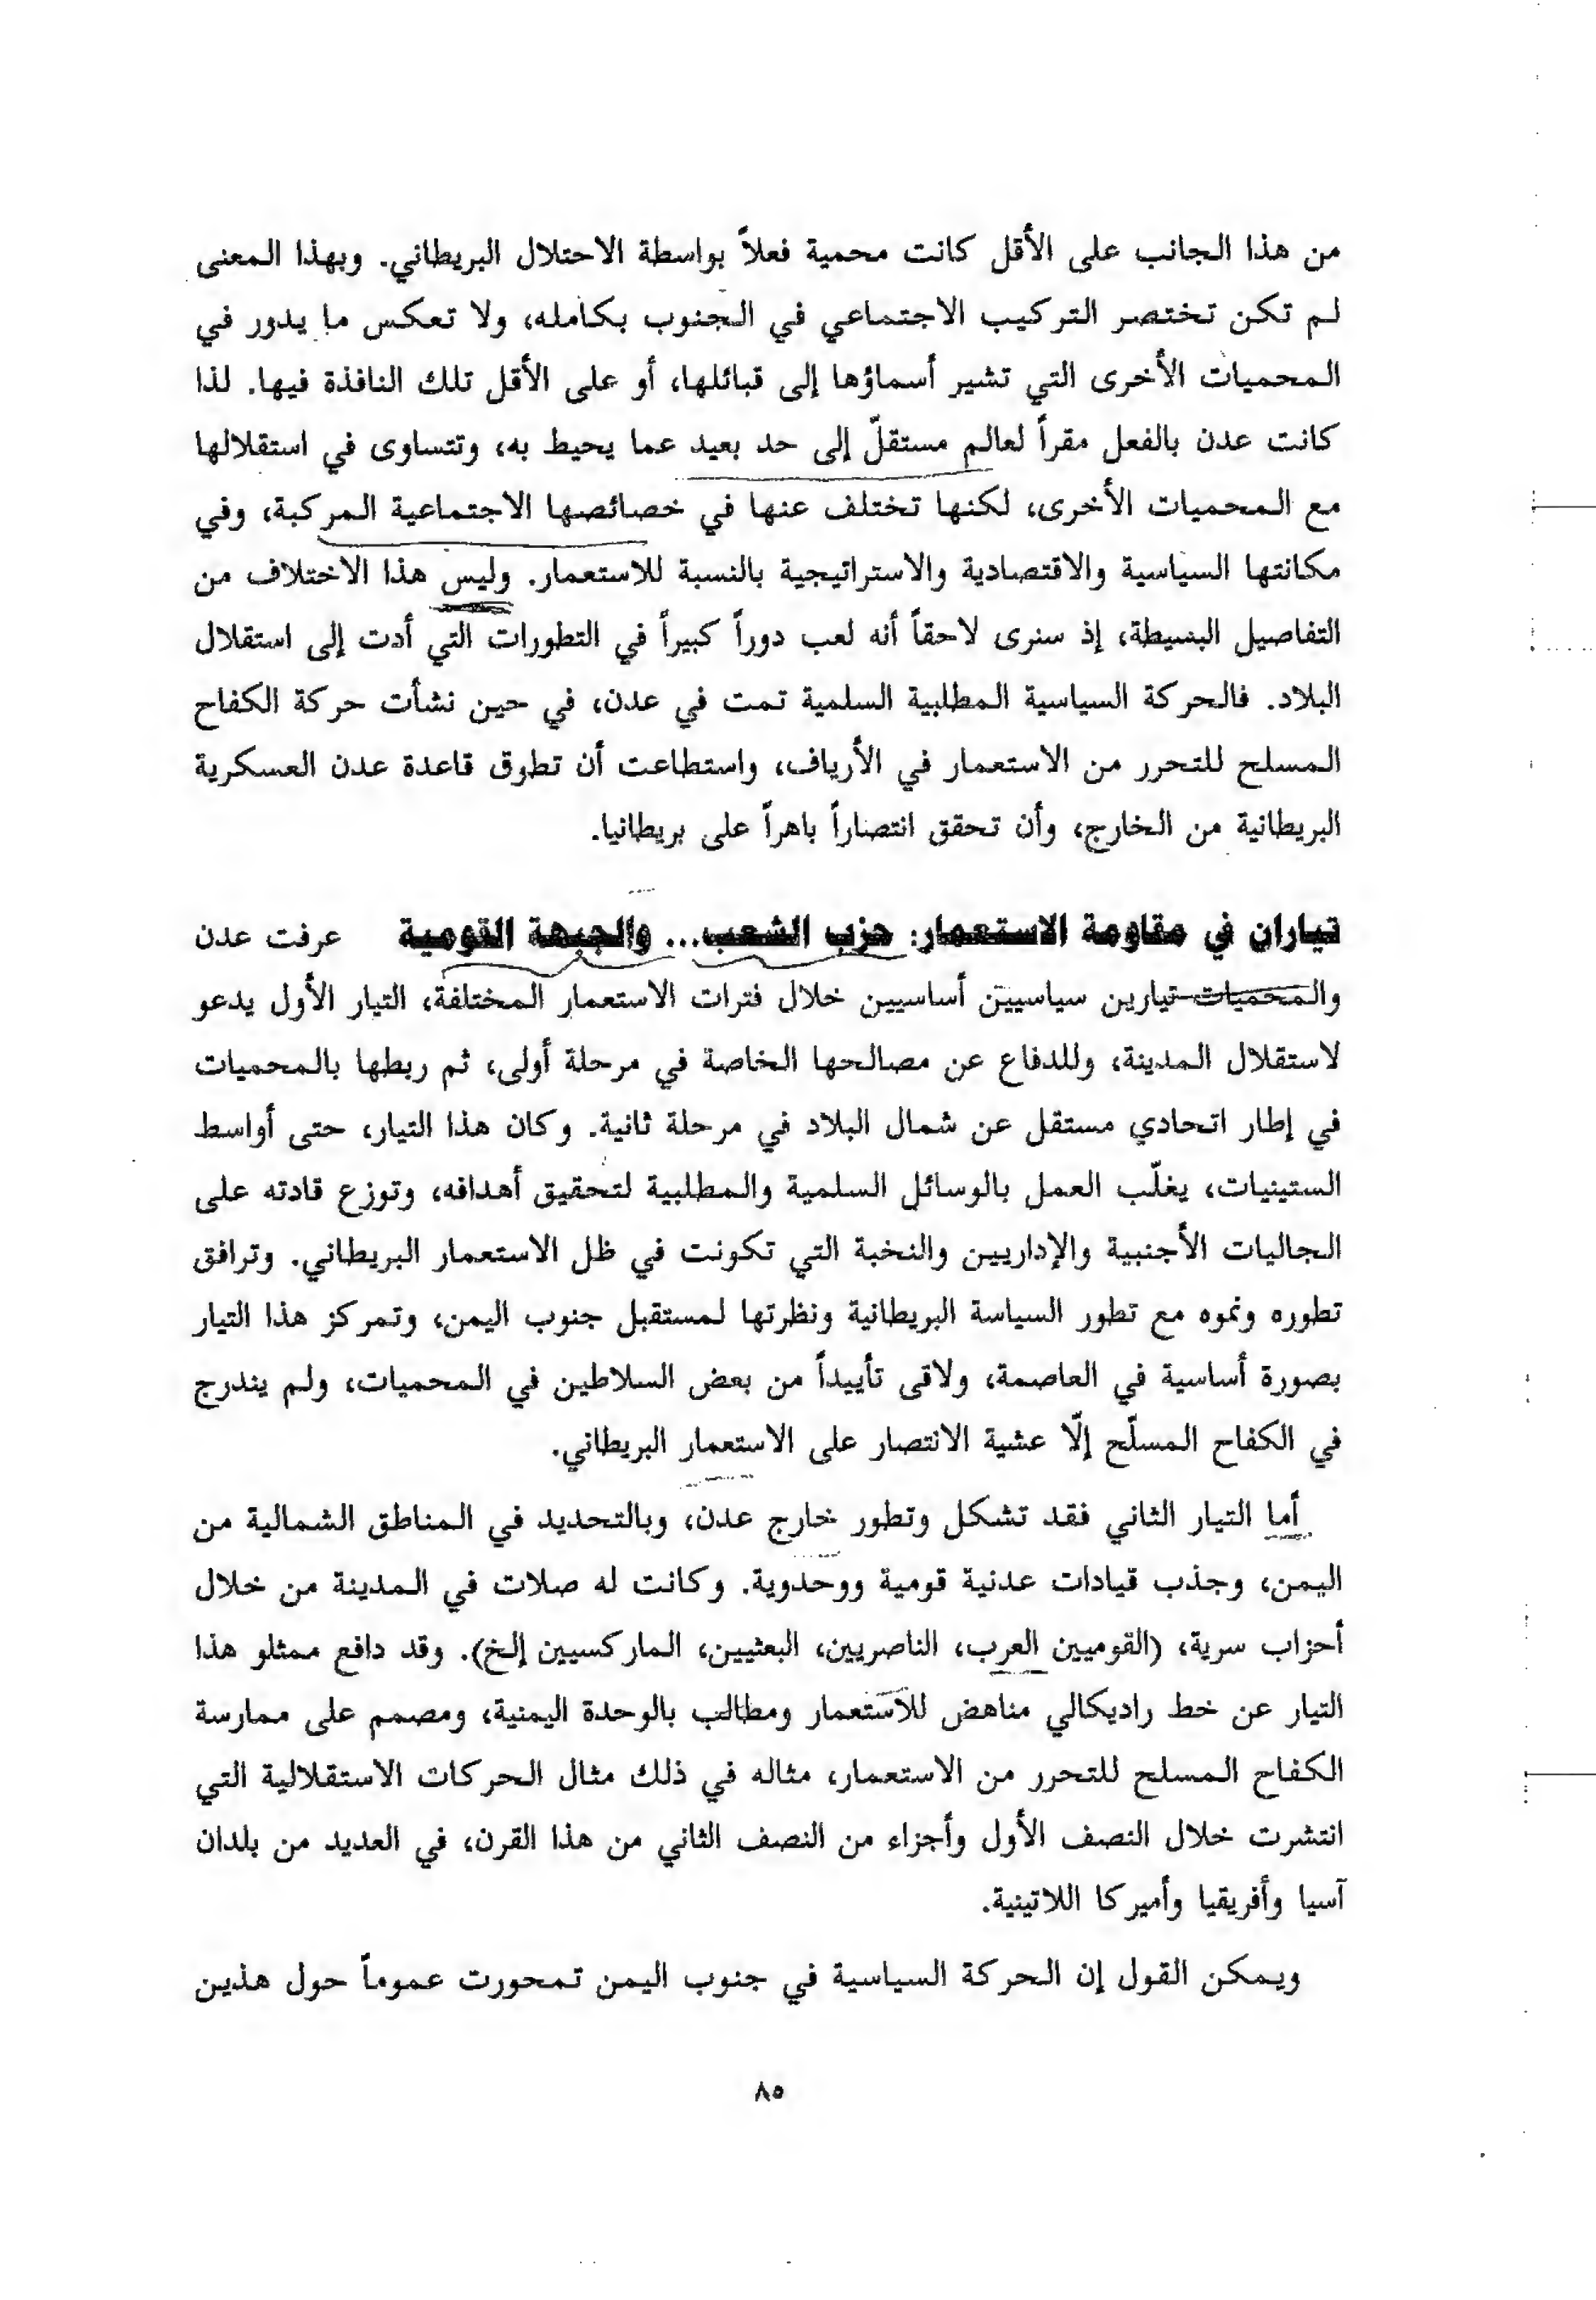 من هذا الجانب على الأقل كانت محمية فعلاً بواسطة الاحتلال البريطاني. وبهذا المعنى
لم تكن تختصر التركيب الاجتماعي في الجنوب بكامله، ولا تعكس ما يدور في
المحميات الأخرى التي تشير أسماؤها إلى قبائلها، أو على الأقل تلك النافذة فيها. لذا
كانت عدن بالفعل مقراً لعالم مستقلّ إلى حد بعيد عما يحيط به، وتتساوى في استقلالها
مع المحميات الأخرى، لكنها تختلف عنها في خصائصها الاجتماعية المركبة، وفي
مكانتها السياسية والاقتصادية والاستراتيجية بالنسبة للاستعمار. وليس هذا الاختلاف من
التفاصيل البسيطة، إذ سنرى لاحقاً أنه لعب دوراً كبيراً في التطورات التي أدت إلى استقلال
البلاد. فالحركة السياسية المطلبية السلمية تمت في عدن، في حين نشأت حركة الكفاح
المسلح للتحرر من الاستعمار في الأرياف، واستطاعت أن تطوق قاعدة عدن العسكرية
البريطانية من الخارج، وأن تحقق انتصاراً باهراً على بريطانيا.
تياران في مقاومة الاستعمار: حزب الشعب... والجبهة القومية عرفت عدن
والمحميات تيارين سياسيين أساسيين خلال فترات الاستعمار المختلفة، التيار الأول يدعو
لاستقلال المدينة، وللدفاع عن مصالحها الخاصة في مرحلة أولى، ثم ربطها بالمحميات
في إطار اتحادي مستقل عن شمال البلاد في مرحلة ثانية. وكان هذا التيار، حتى أواسط
الستينيات، يغلّب العمل بالوسائل السلمية والمطلبية لتحقيق أهدافه، وتوزع قادته على
الجاليات الأجنبية والإداريين والنخبة التي تكونت في ظل الاستعمار البريطاني. وترافق
تطوره ونموه مع تطور السياسة البريطانية ونظرتها لمستقبل جنوب اليمن، وتمركز هذا التيار
بصورة أساسية في العاصمة، ولاقى تأييداً من بعض السلاطين في المحميات، ولم يندرج
في الكفاح المسلّح إلّا عشية الانتصار على الاستعمار البريطاني.
أما التيار الثاني فقد تشكل وتطور خارج عدن، وبالتحديد في المناطق الشمالية من
اليمن، وجذب قيادات عدنية قومية ووحدوية. وكانت له صلات في المدينة من خلال
أحزاب سرية، (القوميين العرب، الناصريين، البعثيين، الماركسيين إلخ). وقد دافع ممثلو هذا
التيار عن خط راديكالي مناهض للاستعمار ومطالب بالوحدة اليمنية، ومصمم على ممارسة
الكفاح المسلح للتحرر من الاستعمار، مثاله في ذلك مثال الحركات الاستقلالية التي
انتشرت خلال النصف الأول وأجزاء من النصف الثاني من هذا القرن، في العديد من بلدان
آسيا وأفريقيا وأميركا اللاتينية.
ويمكن القول إن الحركة السياسية في جنوب اليمن تمحورت عموماً حول هذين
٨٥